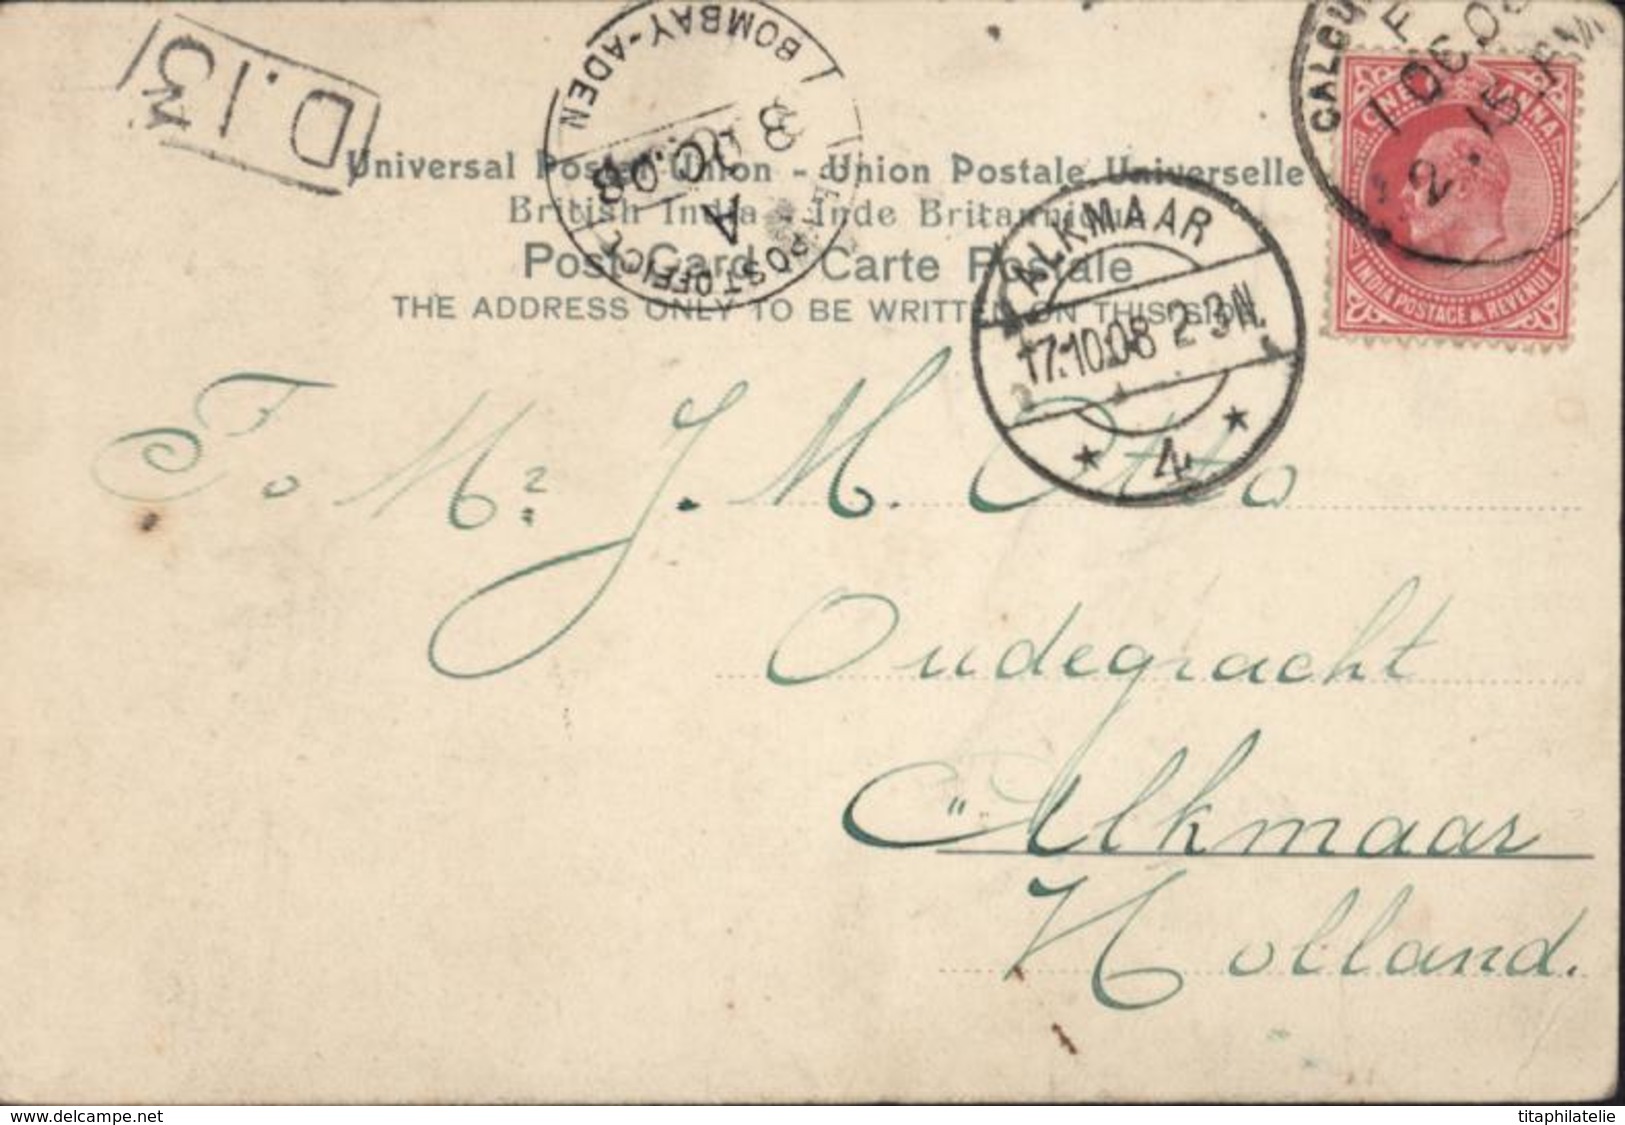 D.13
3
BOMBAY-ADEN
3 OC.08
A
POST OFFICE
CALCU
F
1 OC.08
2.15
ONE ANNA
INDIA POSTAGE & REVENUE
Universal Postal Union - Union Postale Universelle
British India - Inde Britannique
Post Card - Carte Postale
THE ADDRESS ONLY TO BE WRITTEN ON THIS SIDE
ALKMAAR
17.10.08 2-3N.
* 4 *
To Mr. J. M. Otto
Oudegracht
"Alkmaar
Holland.
www.delcampe.net
titaphilatelie